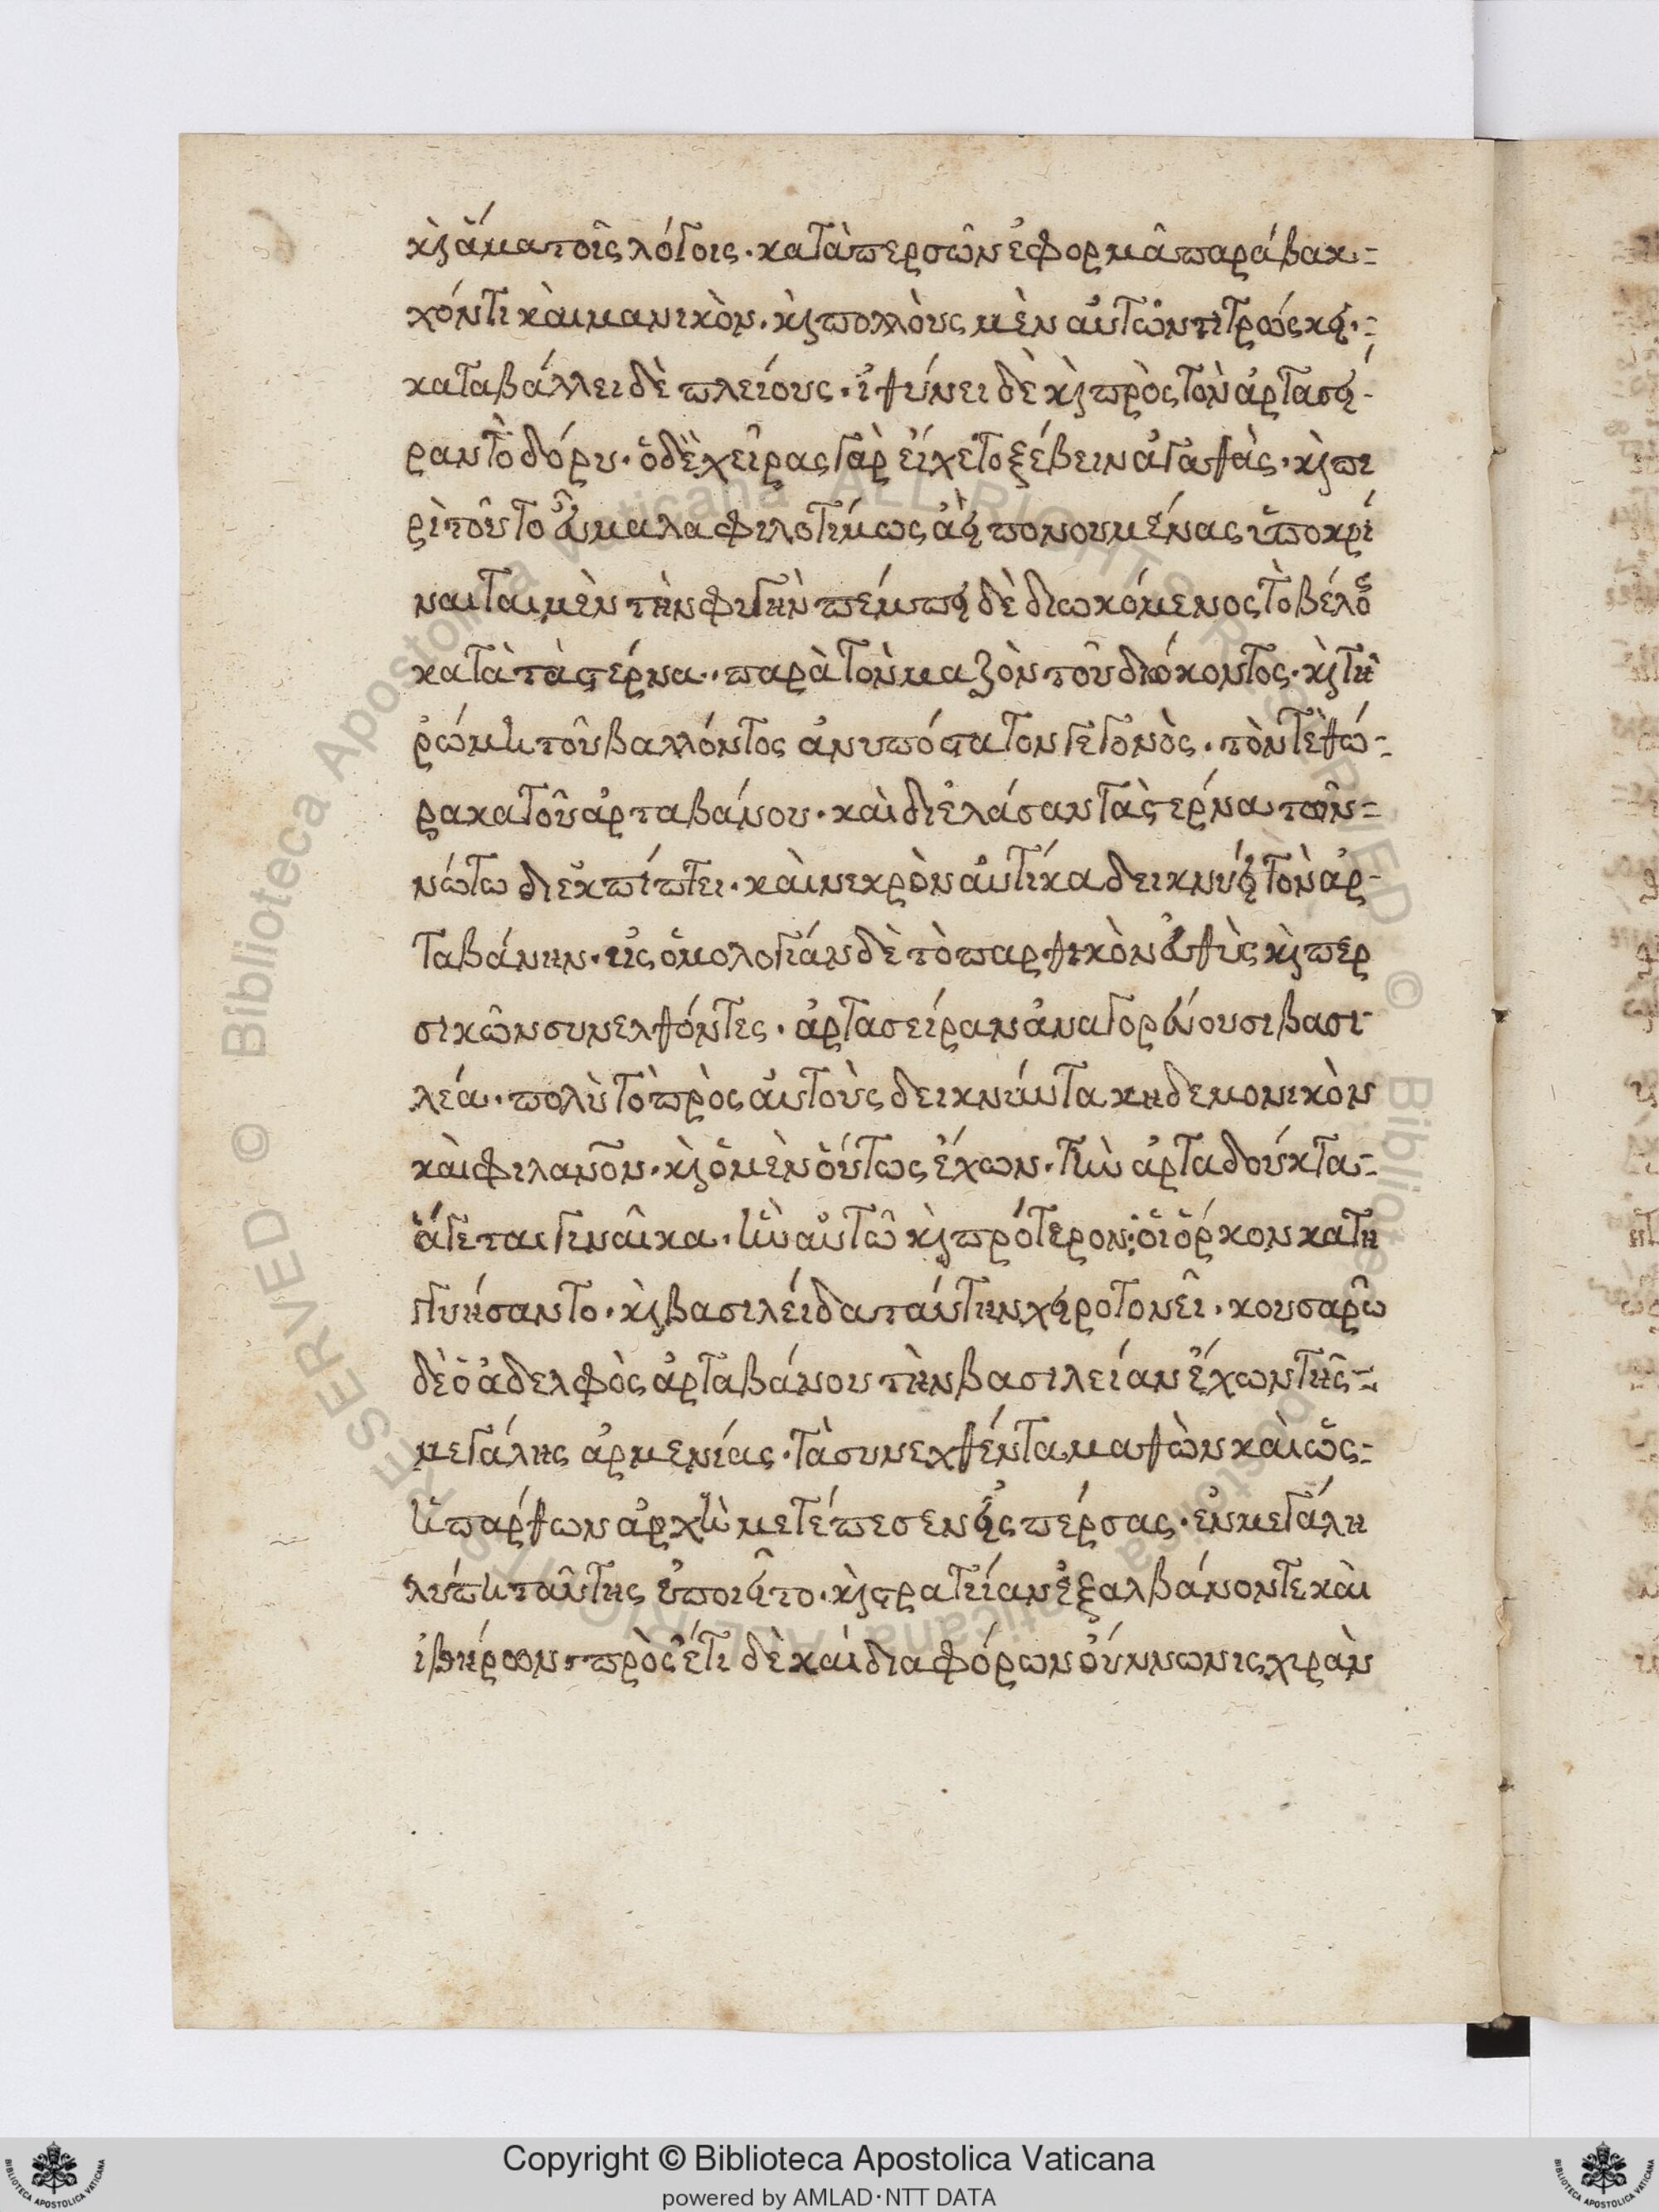 κὶ ἅμα τοῖς λόγοις· κατὰ περσῶν ἐφορμᾶ παράβακ-
χόν τι καὶ μανικὸν· κὶ πολλοὺς μὲν αὐτῶν τιτρώσκει·-
καταβάλλει δὲ πλείους· ἰθύνει δὲ κὶ πρὸς τὸν ἀρτασεί-
ραν τὸ δόρυ· ὁ δὲ χεῖρας γὰρ εἶχε τοξέβειν ἀγαθάς· κὶ πε
ρὶ τοῦτο μαλα φιλοτίμως ἀεὶ πονουμένας ὑποκρί
ναιται μὲν τὴν φυγὴν πέμπει δὲ διωκόμενος τὸ βέλος
κατὰ τὰ στέρνα·· παρὰ τὸν μαζὸν τοῦ διόκοντος· κὶ τῆ
ῥώμη τοῦ βαλλόντος ἀνυπόστατον γεγονὸς· τὸν τὲ θώ-
ρακα τοῦ ἀρταβάνου· καὶ διελάσαν τὰ στέρνα τῶν-
νώτω διεκπίπτει· καὶ νεκρὸν αὐτίκα δεικνύει τὸν ἀρ-
ταβάνην· εἰς ὁμολογίαν δὲ τὸ παρθικὸν εὐθὺς κὶ περ
σικῶν συνελθόντες· ἀρτασείραν ἀναγορεύουσι βασι
λέα· πολὺ τὸ πρὸς αὐτοὺς δεικνύντα κηδεμονικὸν
καὶ φιλανον· κὶ ὁ μὲν οὕτως ἔχων· τὴν ἀρταδούκτα-
ἄγεται γυναῖκα· ἣν αὐτῶ κὶ πρότερον· οἱ ὅρκον κατη
γγυήσαντο· κὶ βασιλείδα τάυτην χειροτονεῖ· κουσαρῶ
δὲ ὁ ἀδελφὸς ἀρταβάνου τὴν βασιλείαν ἔχων τῆς-
μεγάλης ἀρμενίας· τὰ συνεχθέντα μαθὼν καὶ ὡς-
ἡ παρθων ἀρχὴ μετέπεσεν εἰς πέρσας· ἐν μεγάλη
λύπη ταύτης ἐποιεῖτο· κὶ στρατιίαν ἐξ αλβάνον τε καὶ
ἰβήρων· πρὸς ἔτι δὲ καὶ διαφόρων οὕννων ισχιρὰν
Copyright © Biblioteca Apostolica Vaticana
powered by AMLAD·NTT DATA